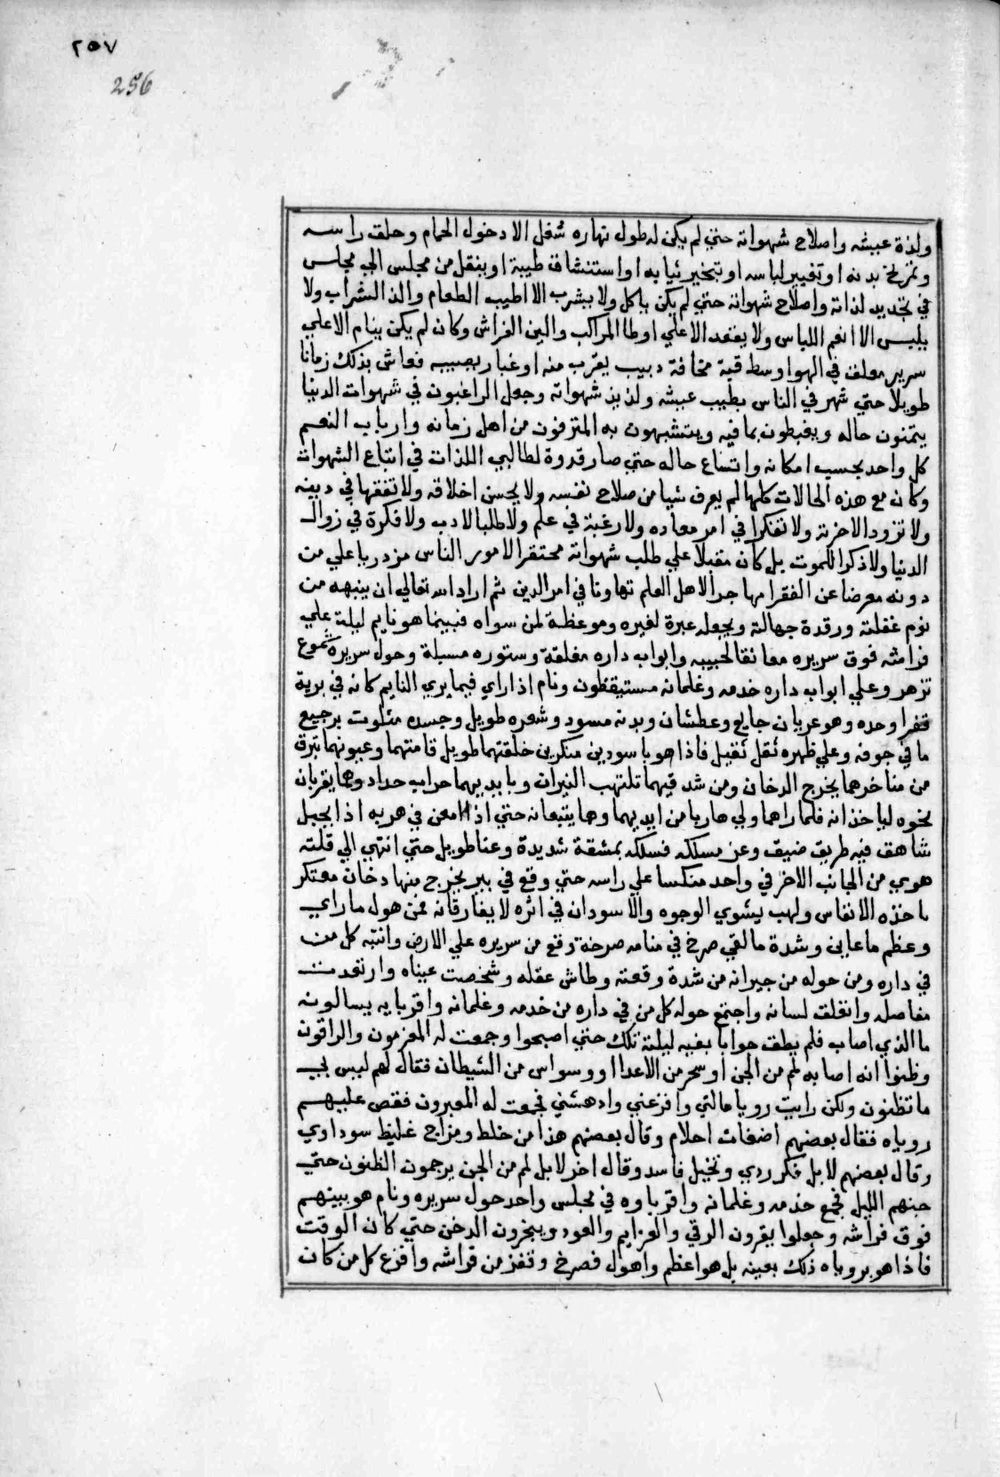 ٢٥٧
256
ولذة عيشه واصلاح شهواته حتي لم يكن له طول نهاره شغل الا دخول الحمام وحلق راسه
وتمريخ بدنه او تغيير لباسه او تبخير ثيابه او استنشاق طيبة او ينقل من مجلس الي مجلس
في تجديد لذاته واصلاح شهواته حتي لم يكن ياكل ولا يشرب الا اطيب الطعام والذ الشراب ولا
يلبس الا انعم اللباس ولا يقعد الا علي اوطا المراكب والين الفراش وكان لم يكن ينام الا علي
سرير معلق في الهوا وسط قبة مخافة دبيب يقرب منه او غبار يصيبه فعاش بذلك زمانا
طويلا حتي شهر في الناس بطيب عيشه ولذيذ شهواته وجعل الراغبون في شهوات الدنيا
يتمنون حاله ويغبطون بما فيه ويتشبهون به المترفون من اهل زمانه وارباب النعم
كل واحد بحسب امكانه واتساع حاله حتي صار قدوة لطالبي اللذات في اتباع الشهوات
وكان مع هذه الحالات كلها لم يعرف شيا من صلاح نفسه ولا يحسن اخلاقه ولا تفقها في دينه
ولا تزود الاخرته ولا تفكرا في امر معاده ولا رغبة في علم ولا طلبا لادب ولا فكرة في زوال
الدنيا ولا ذكرا للموت بل كان مقبلا علي طلب شهواته محتقرا لامور الناس مزدريا علي من
دونه معرضا عن الفقرا مهاجرا لاهل العلم تهاونا في امر الدين ثم اراد الله تعالي ان ينبهه من
نوم غفلته ورقدة جهالته ويجعله عبرة لغيره وموعظة لمن سواه فبينما هو نايم ليلة علي
فراشه فوق سريره معانقا لحبيبه وابواب داره مغلقة وستوره مسبلة وحول سريره شموع
تزهر وعلي ابواب داره خدمه وغلمانه مستيقظون ونام اذا راي فيما يري النايم كانه في برية
قفرا وحده وهو عريان جايع وعطشان وبدنه مسود وشعره طويل وجسده متلوت برجيع
ما في جوفه وعلي ظهره ثقل ثقيل فاذا هو باسودين منكرين خلقتهما طويل قامتهما وعيونهما تبرق
من مناخرهما يخرج الدخان ومن شدقيهما تلتهب النيران وبايديهما حراب حداد وهما يقربان
نحوه لياخذانه فلما راهما ولي هاربا من ايديهما وهما يتبعانه حتي اذا امعن في هربه اذا بجبل
شاهق فيه طريق ضيق وعر مسلكه فسلكه بمشقة شديدة وعنا طويل حتي انتهي الي قلته
هوي من الجانب الاخر في واحد منكسا علي راسه حتي وقع في بير يخرج منها دخان معتكر
ياخذه الانفاس ولهب يشوي الوجوه والاسودان في اثره لا يفارقانه فمن هول ما راي
وعظم ما عاين وشدة ما لقي صرخ في منامه صرخة وقع من سريره علي الارض وانتبه كل من
في داره ومن حوله من جيرانه من شدة وقعته وطاش عقله وشخصت عيناه وارتعدت
مفاصله وانغلق لسانه واجتمع حوله كل من في داره من خدمه وغلمانه واقربايه يسالونه
ما الذي اصاب فلم يطق جوابا بقيه ليلته تلك حتي اصبحوا وجمعت له المعزمون والراقون
وظنوا انه اصابه لمم من الجن او سحر من الاعدا او وسواس من الشيطان فقال لهم ليس بي
ما تظنون ولكن رايت رويا هالتي وافزعني وادهشني فجمعت له المعبرون فقص عليهم
روياه فقال بعضهم اضغاث احلام وقال بعضهم هذا من خلط ومزاج غليظ سوداوي
وقال بعضهم لا بل فكر ردي وتخيل فاسد وقال اخر لا بل لمم من الجن يرجمون الظنون حتي
جنهم الليل فجمع خدمه وغلمانه واقرباوه في مجلس واحد حول سريره ونام هو بينهم
فوق فراشه وجعلوا يقرون الرقي والعزايم والعود ويبخرون الدخن حتي كان الوقت
فاذا هو بروياه ذلك بعينه بل هو اعظم واهول فصرخ وقفز من فراشه وافزع كل من كان